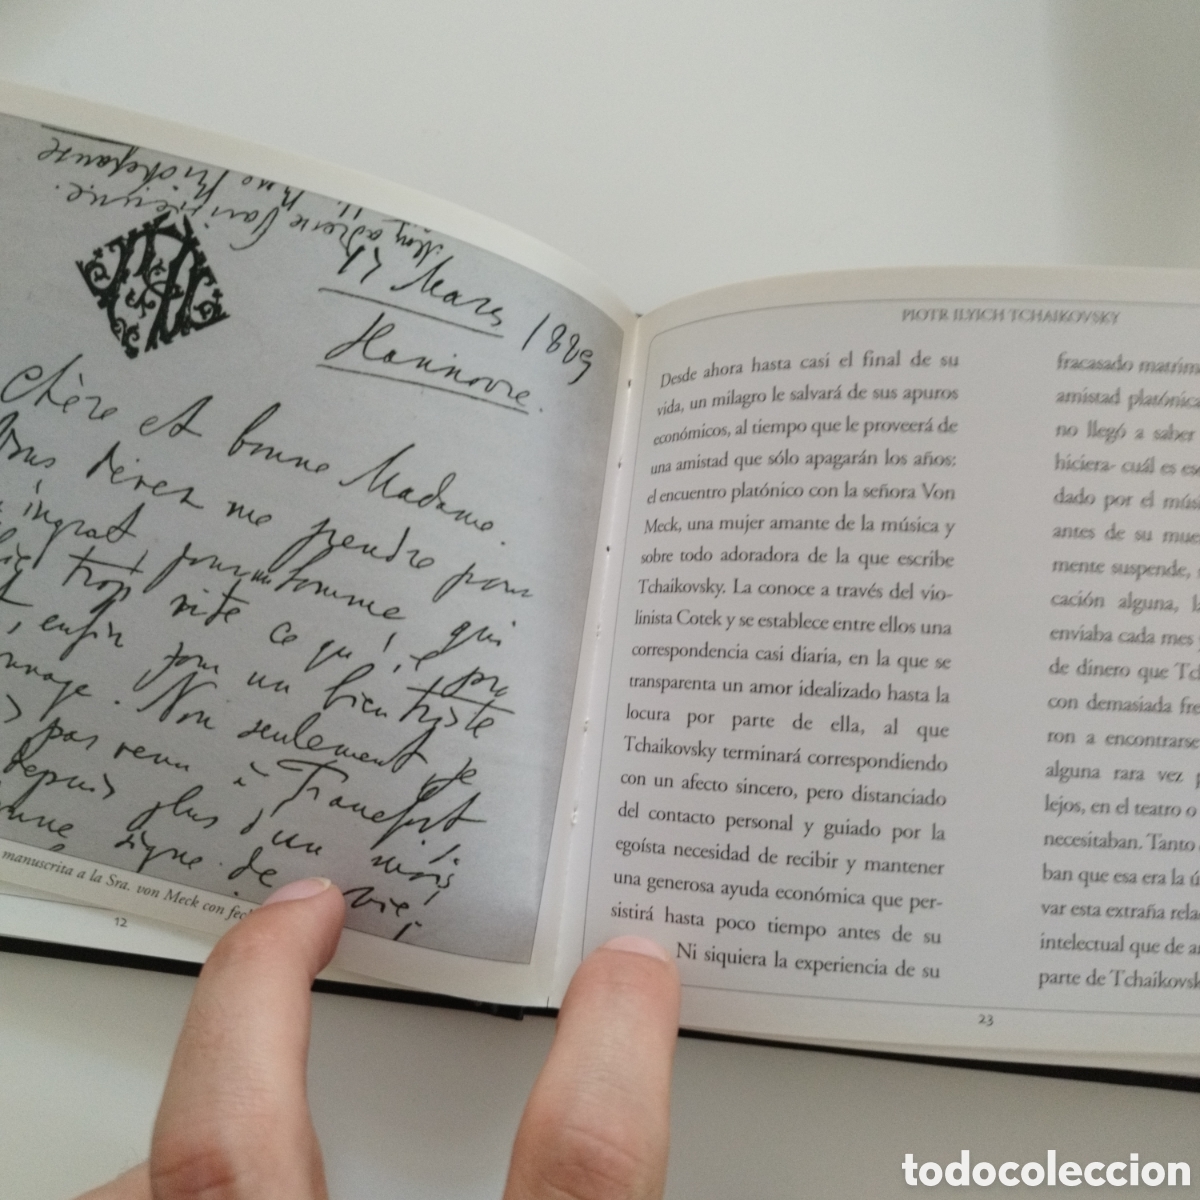 Mars 1889
Hannovre.
Chère et bonne Madame.
Vous devez me prendre pour
ingrat pour un homme qui
trop vite ce qu'il pro
, enfin pour un bien triste
Non seulement je
pas venu à Francfort
depuis plus d'un mois
signe de vie!
manuscrita a la Sra. von Meck con fec
12
PIOTR ILYICH TCHAIKOVSKY
Desde ahora hasta casi el final de su
vida, un milagro le salvará de sus apuros
económicos, al tiempo que le proveerá de
una amistad que sólo apagarán los años:
el encuentro platónico con la señora Von
Meck, una mujer amante de la música y
sobre todo adoradora de la que escribe
Tchaikovsky. La conoce a través del vio-
linista Cotek y se establece entre ellos una
correspondencia casi diaria, en la que se
transparenta un amor idealizado hasta la
locura por parte de ella, al que
Tchaikovsky terminará correspondiendo
con un afecto sincero, pero distanciado
del contacto personal y guiado por la
egoísta necesidad de recibir y mantener
una generosa ayuda económica que per-
sistirá hasta poco tiempo antes de su
Ni siquiera la experiencia de su
fracasado matrim
amistad platónica
no llegó a saber
hiciera- cuál es es
dado por el músi
antes de su mue
mente suspende,
cación alguna, l
enviaba cada mes
de dinero que Tc
con demasiada fre
ron a encontrarse
alguna rara vez p
lejos, en el teatro o
necesitaban. Tanto
ban que esa era la ú
var esta extraña rela
intelectual que de a
parte de Tchaikovsk
23
todocoleccion